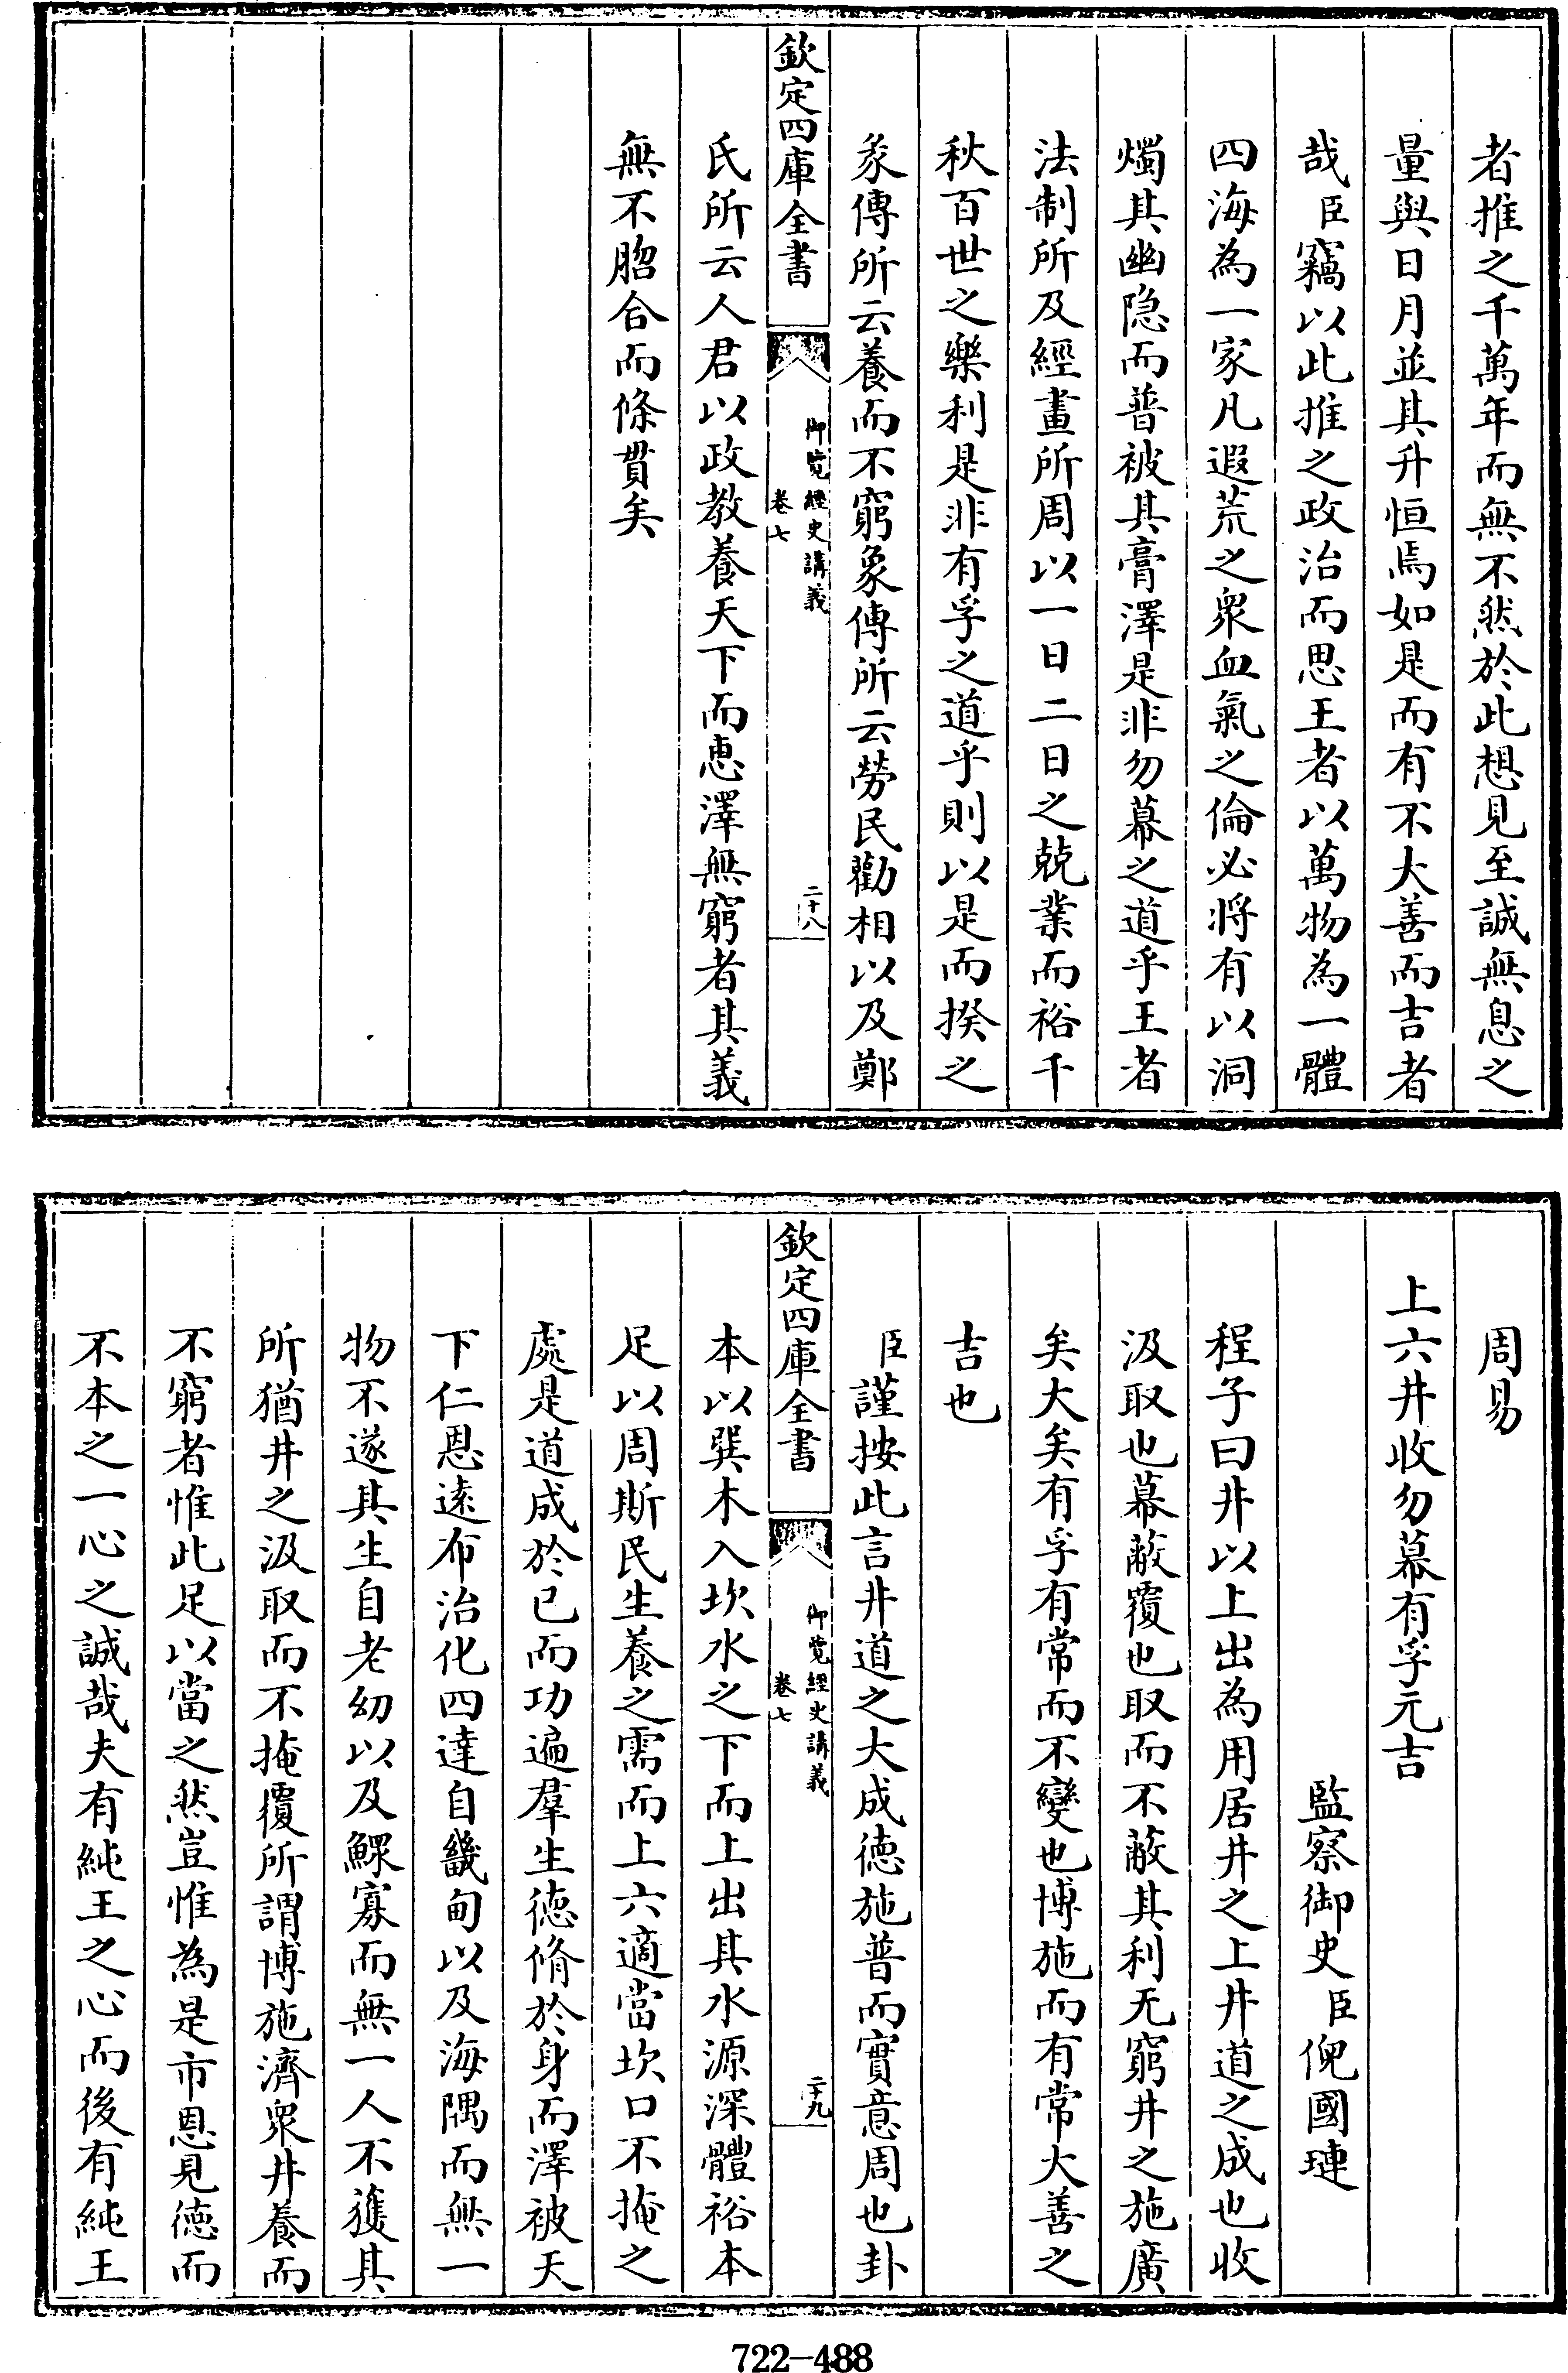 者推之千萬年而無不然於此想見至誠無息之
量與日月並其升恒焉如是而有不大善而吉者
哉臣竊以此推之政治而思王者以萬物為一體
四海為一家凡遐荒之衆血氣之倫必將有以洞
燭其幽隐而普被其膏澤是非勿幕之道乎王者
法制所及經畫所周以一日二日之兢業而裕千
秋百世之樂利是非有孚之道乎則以是而揆之
彖傳所云養而不窮象傳所云勞民勸相以及鄭
欽定四庫全書
御覽經史講義
卷七
二十八
氏所云人君以政教養天下而恵澤無窮者其義
無不脗合而條貫矣
周易
上六井收勿幕有孚元吉
監察御史臣倪國璉
程子曰井以上出為用居井之上井道之成也收
汲取也幕蔽覆也取而不蔽其利无窮井之施廣
矣大矣有孚有常而不變也博施而有常大善之
吉也
臣謹按此言井道之大成德施普而實意周也卦
欽定四庫全書
御覽經史講義
卷七
二十九
本以巽木入坎水之下而上出其水源深體裕本
足以周斯民生養之需而上六適當坎口不掩之
處是道成於已而功遍羣生德脩於身而澤被天
下仁恩遠布治化四達自畿甸以及海隅而無一
物不遂其生自老幼以及鰥寡而無一人不獲其
所猶井之汲取而不掩覆所謂博施濟衆井養而
不窮者惟此足以當之然豈惟為是市恩見德而
不本之一心之誠哉夫有純王之心而後有純王
722-488